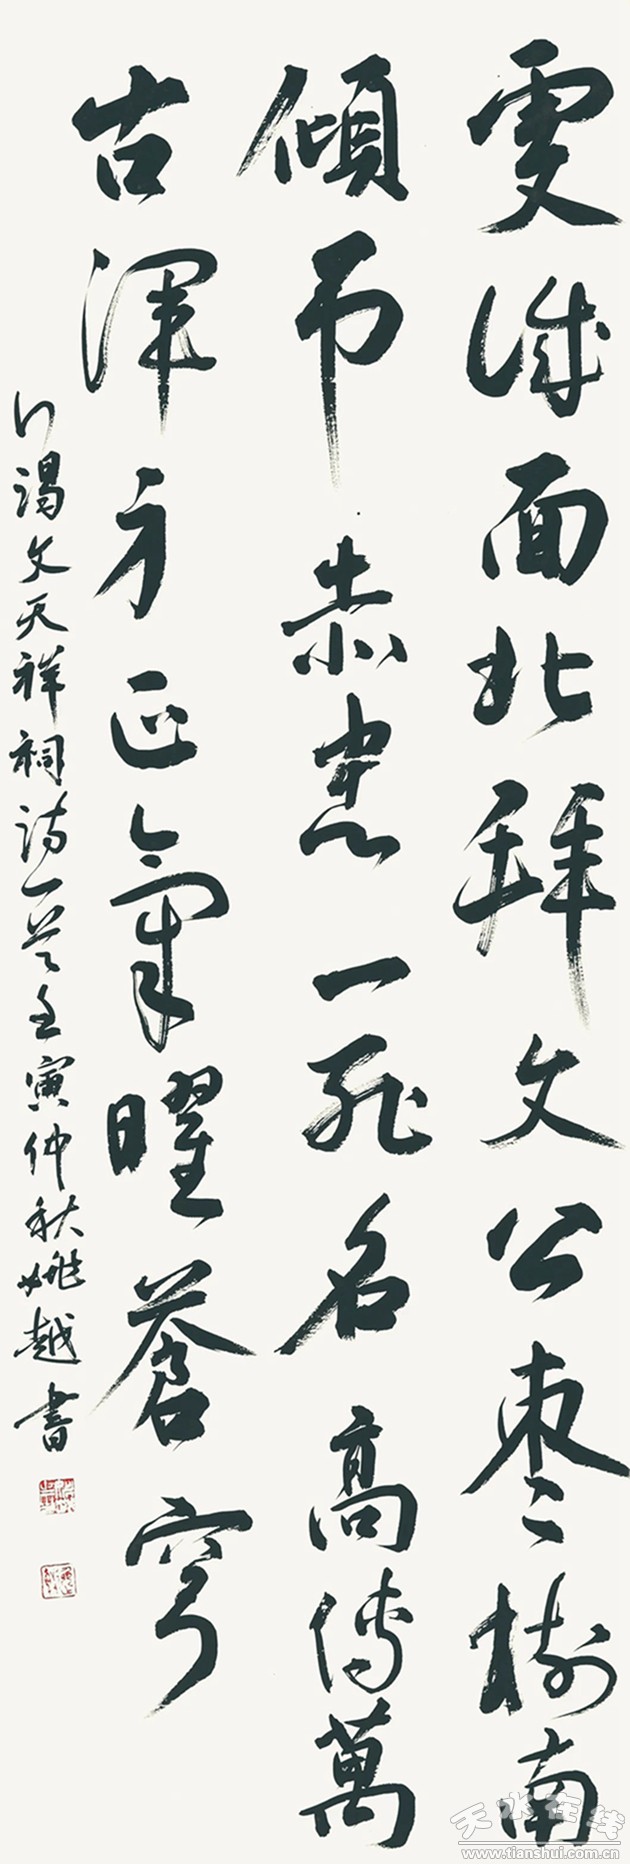 虔誠面北拜文公枣樹南
傾吊赤忠一死名高傳萬
古渾方正氣曜蒼穹
謁文天祥祠詩一首壬寅仲秋姚越書
天水在线
www.tianshui.com.cn